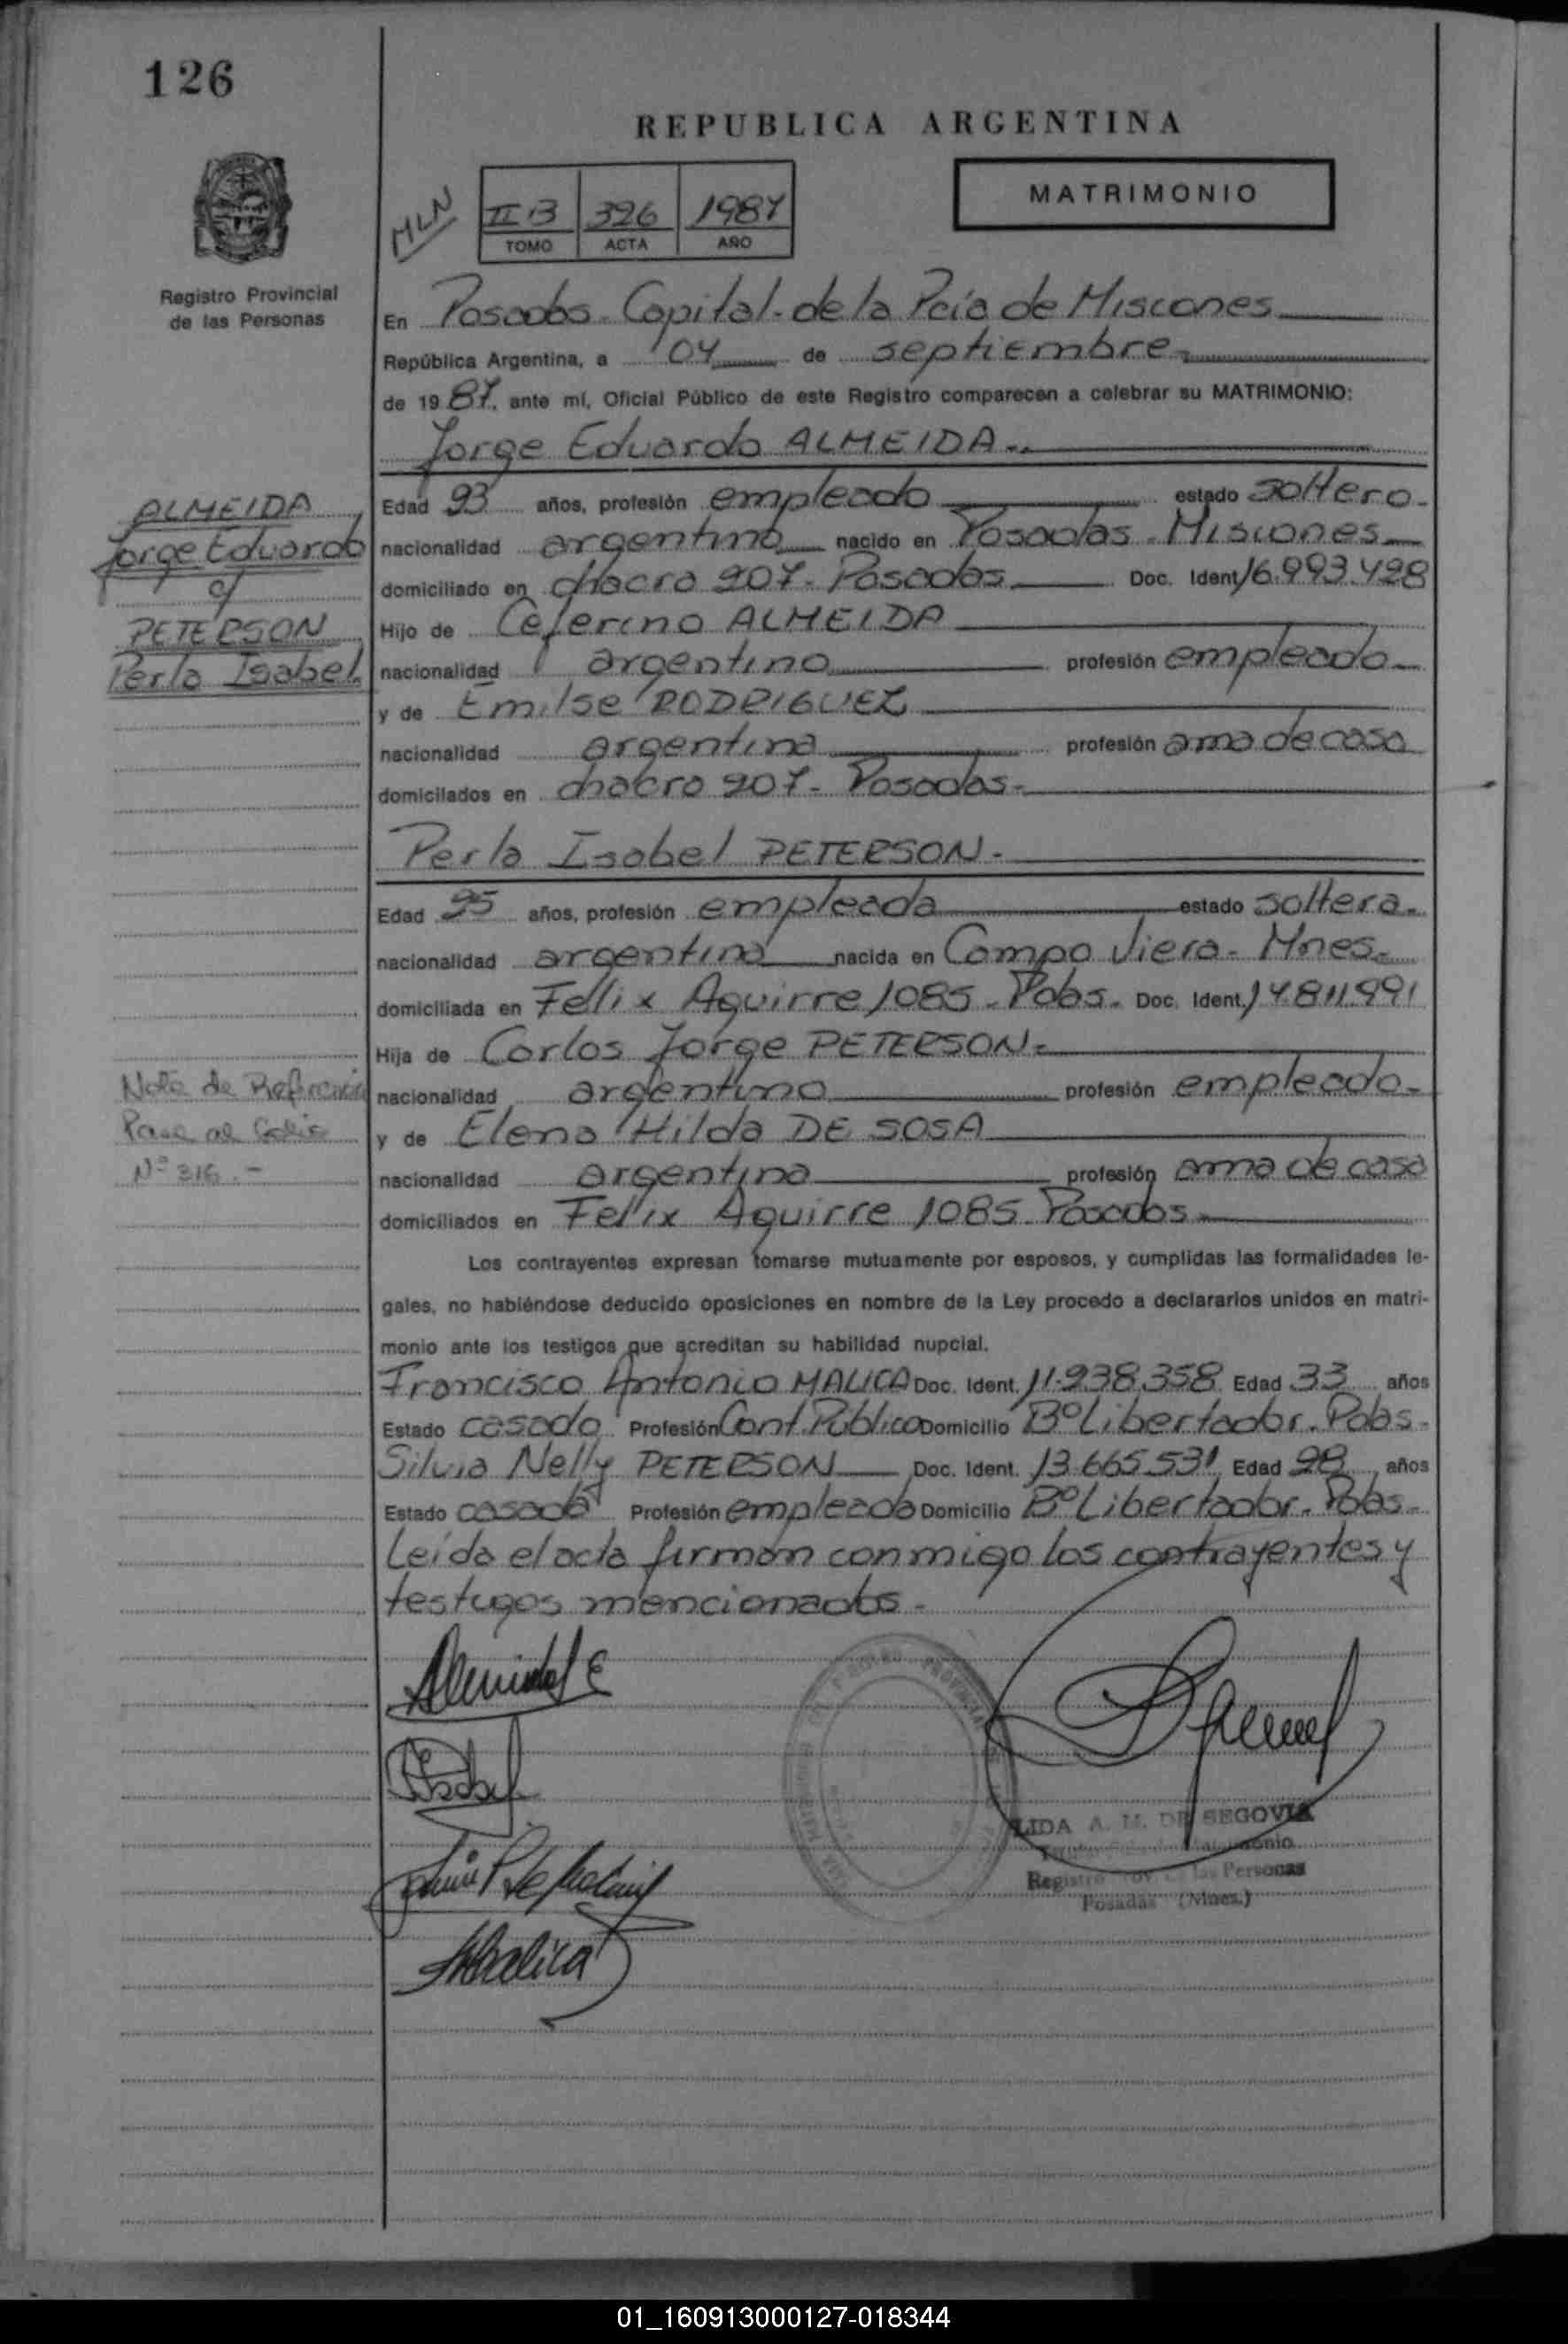 126
REPUBLICA ARGENTINA
MATRIMONIO
MLN
II B 326 1987
TOMO ACTA AÑO
Registro Provincial
de las Personas
En Posadas - Capital - de la Pcia de Misiones
República Argentina, a 04 de septiembre
de 19 87, ante mí, Oficial Público de este Registro comparecen a celebrar su MATRIMONIO:
Jorge Eduardo ALMEIDA
ALMEIDA
Jorge Eduardo
c/
PETERSON
Perla Isabel
Edad 23 años, profesión empleado estado soltero
nacionalidad argentino nacido en Posadas - Misiones
domiciliado en chacra 207 - Posadas Doc. Ident. 16.993.428
Hijo de Ceferino ALMEIDA
nacionalidad argentino profesión empleado
y de Emilse RODRIGUEZ
nacionalidad argentina profesión ama de casa
domiciliados en chacra 207 - Posadas
Perla Isabel PETERSON
Edad 25 años, profesión empleada estado soltera
nacionalidad argentina nacida en Campo Viera - Mnes
domiciliada en Felix Aguirre 1085 - Pdas. Doc. Ident. 14.811.991
Hija de Carlos Jorge PETERSON
nacionalidad argentino profesión empleado
y de Elena Hilda DE SOSA
nacionalidad argentina profesión ama de casa
domiciliados en Felix Aguirre 1085 Posadas
Nota de Referencia
Pase al Folio
Nº 316.-
Los contrayentes expresan tomarse mutuamente por esposos, y cumplidas las formalidades le-
gales, no habiéndose deducido oposiciones en nombre de la Ley procedo a declararlos unidos en matri-
monio ante los testigos que acreditan su habilidad nupcial.
Francisco Antonio MALICA Doc. Ident. 11.938.358 Edad 33 años
Estado casado Profesión Cont. Público Domicilio Bº Libertador. Pdas.
Silvia Nelly PETERSON Doc. Ident. 13.665.531 Edad 28 años
Estado casada Profesión empleada Domicilio Bº Libertador. Pdas.
Leída el acta firman conmigo los contrayentes y
testigos mencionados.
Almeida J E
Isabel
Malica
LIDA A. M. DE SEGOVIA
Registro Prov. de las Personas
Posadas (Mnes.)
01_160913000127-018344